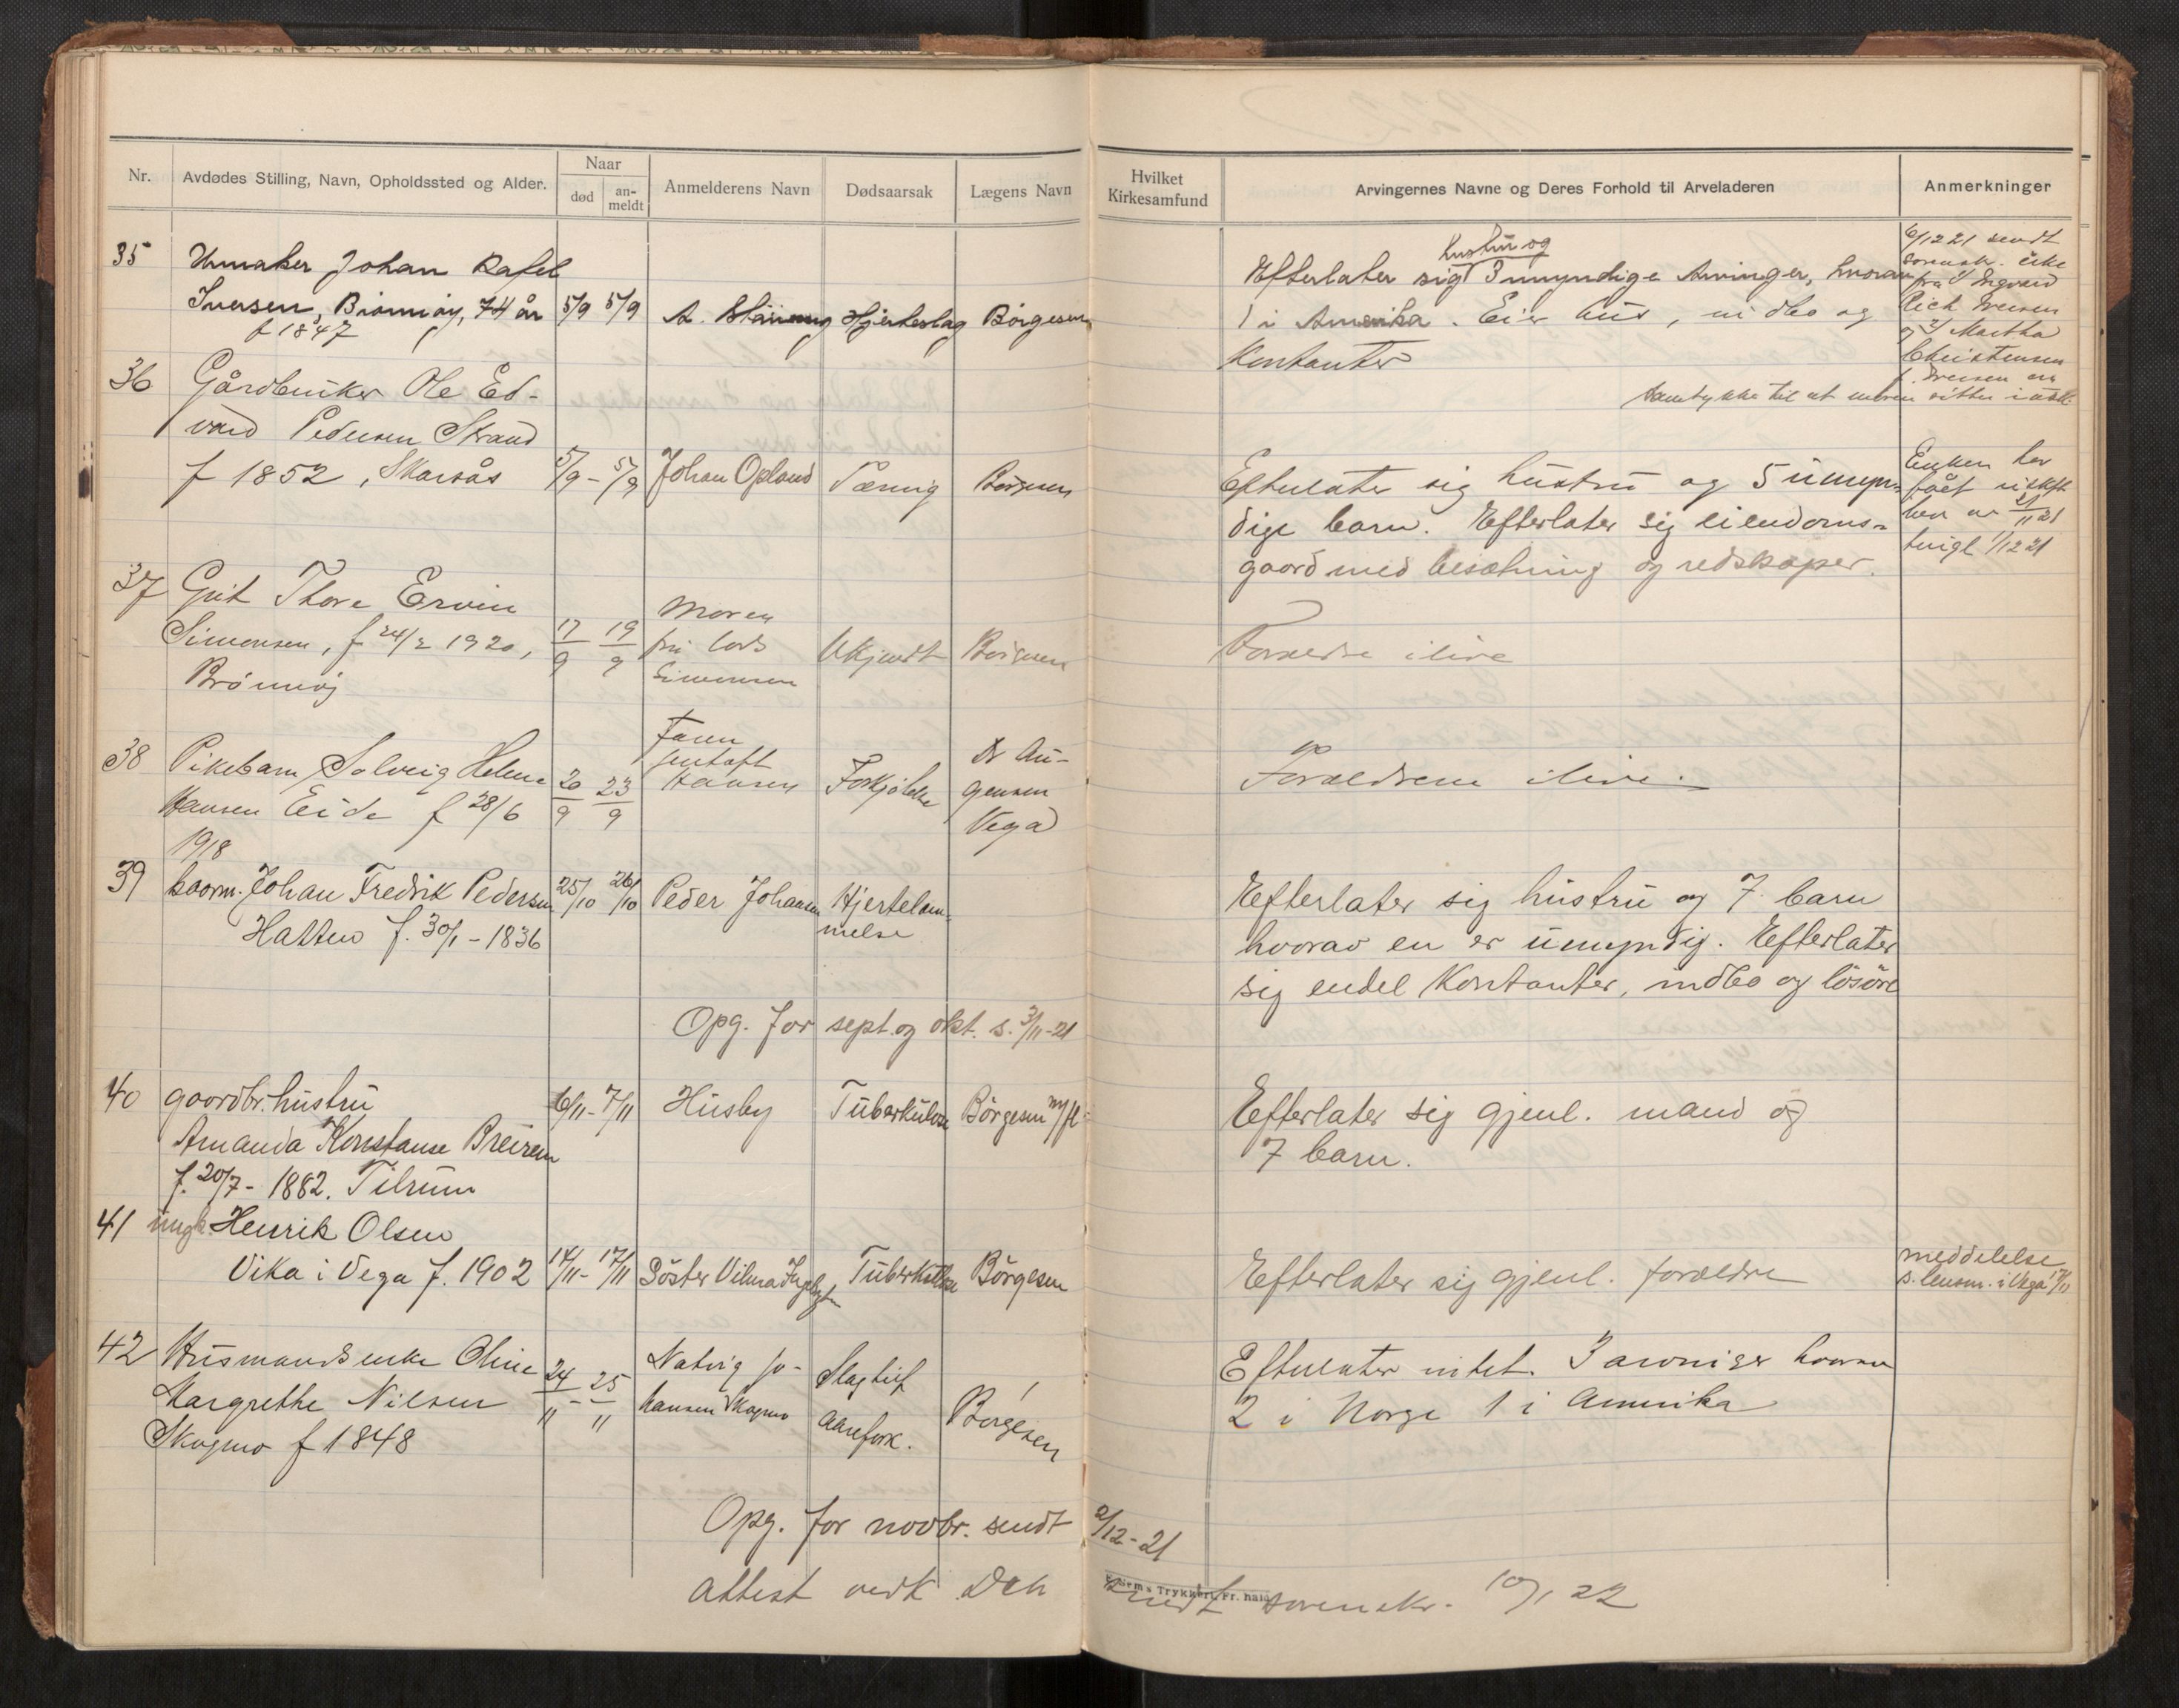 Nr.
Avdødes Stilling, Navn, Opholdssted og Alder.
Naar
død
an-
meldt
Anmelderens Navn
Dødsaarsak
Lægens Navn
Hvilket
Kirkesamfund
Arvingernes Navne og Deres Forhold til Arveladeren
Anmerkninger
35 Urmaker Johan Rafel
Iversen, Brønnøy, 74 år 5/9 5/9 A. Hjerteslag Børgesen
f 1847
hustru og
Efterlater sig 3 myndige Arvinger, hvorav
1 i Amerika. Eier hus, indbo og
Kontanter
6/12 21 sendt
sorenskr. erkl
fra Ingvard
Rich Iversen
og Martha
Christensen
f. Iversen om
samtykke til at moren sitter i uskifte
36 Gårdbruker Ole Ed-
vard Pedersen Strand
f 1852, Skarsås 5/9 - 5/9 Johan Opland Tæring Børgesen
Efterlater sig hustru og 5 umyn-
dige barn. Efterlater sig eiendoms-
gaard med besætning og redskaper.
Enken har
fået uskift
bev av 21/11 21
tingl 1/12 21
37 Gut Thore Ervin
Simonsen, f 24/2 1920,
Brønnøy
17/9 19/9
Moren
fru lods
Simonsen
Ukjendt Børgesen
Forældre ilive
38 Pikebarn Solveig Helene
Hansen Eide f 28/6
1918
20/9 23/9
Faren
Hansen
Forkjølelse
Dr Au-
gensen
Vega
Forældrene ilive.
39 kaarm. Johan Fredrik Pedersen 25/10 26/10 Peder Johansen Hjertelam-
melse
Hatten f. 30/1 - 1836
Efterlater sig hustru og 7 barn
hvorav en er umyndig. Efterlater
sig endel Kontanter, indbo og løsøre
Opg. for sept. og okt. s. 3/11-21
40 gaardbr. hustru 6/11 - 7/11 Husby Tuberkulose Børgesen m/fl.
Amanda Konstanse Breirem
f. 20/7 - 1882. Tilrum
Efterlater sig gjenl. mand og
7 barn.
41 ungk. Henrik Olsen
Vika i Vega f. 1902 14/11 - 17/11 Søster Vilma Tuberkulose Børgesen
Efterlater sig gjenl. forældre
meddelelse
s. lensm. i Vega 17/11
42 Husmandsenke Oline
Margrethe Nilsen
Skogmo f 1848
24/11 - 25/11
Natvig Jo-
hansen Skogmo
Slagtilf
Aarefork.
Børgesen
Efterlater intet. 3 arvinger hvorav
2 i Norge 1 i Amerika
Opg. for novbr. sendt 2/12-21
attest vedk Des
sendt sorenskr. 10/1 22